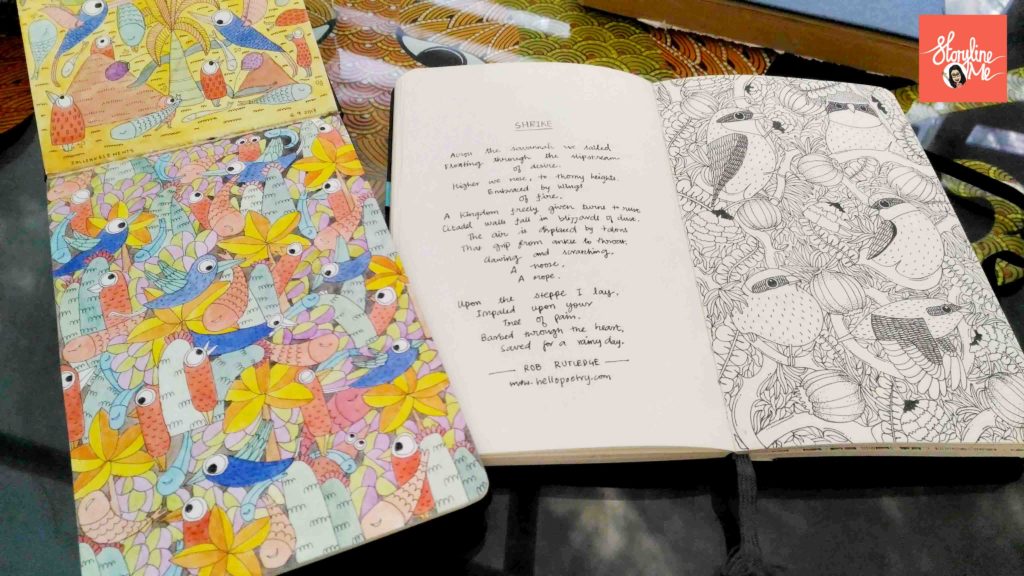 Storyline
Me
6.9.2018
SHRIKE
Across the savannah we sailed
Floating through the slipstream
of desire.
Higher we rise, to thorny heights.
Embraced by wings
of fire.
A Kingdom freely given burns + ruins
Citadel walls fall in blizzards of dust.
The air is displaced by talons
That grip from ankle to throat,
Clawing and scratching,
A noose,
A rope.
Upon the steppe I lay,
Impaled upon your
Tree of pain.
Barbed through the heart,
Saved for a rainy day.
ROB RUTLEDGE
www.hellopoetry.com